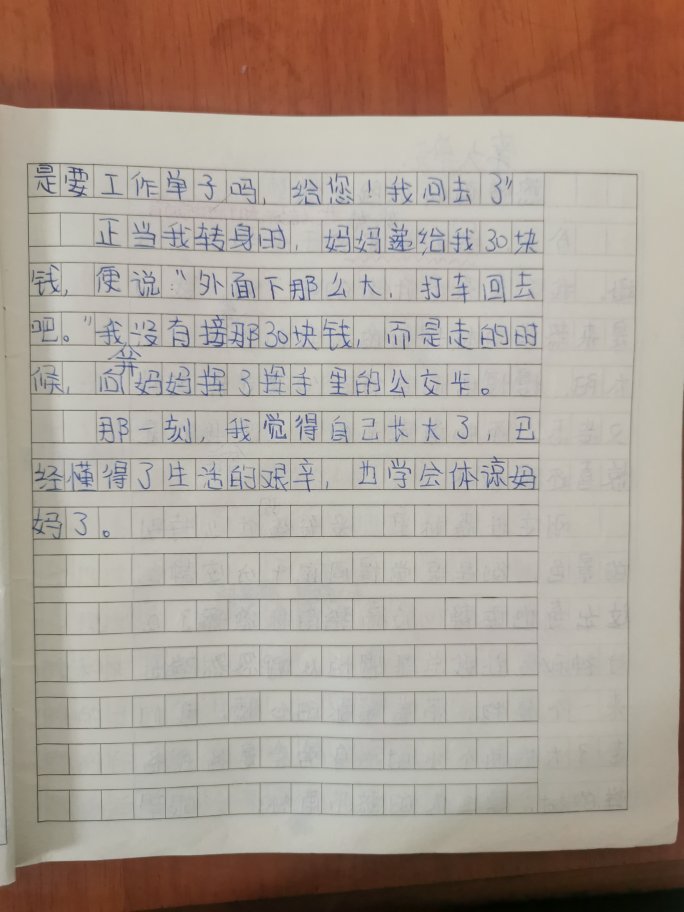 是要工作单子吗，给您！我回去了"
正当我转身时，妈妈递给我30块
钱，便说"外面下那么大，打车回去
吧。"我没有接那30块钱，而是走的时
候，向妈妈挥了挥手里的公交卡。
那一刻，我觉得自己长大了，已
经懂得了生活的艰辛，也学会体谅妈
妈了。